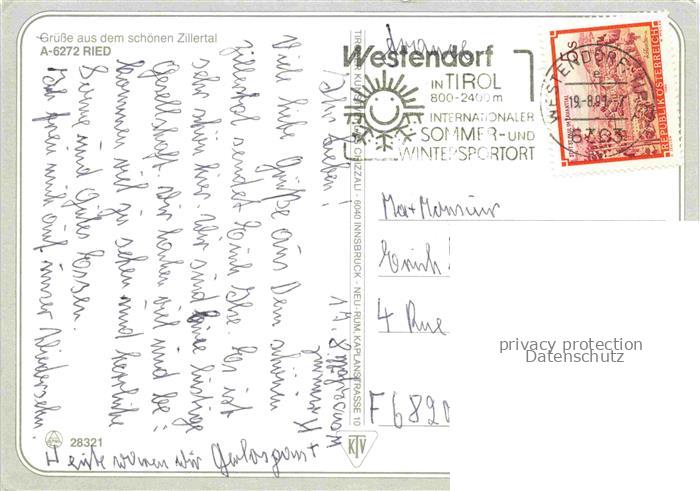 Grüße aus dem schönen Zillertal
A-6272 RIED
Westendorf
IN TIROL
800-2400m
INTERNATIONALER
SOMMER- UND
WINTERSPORTORT
WESTENDORF
19.-8.89.-7
6363
REPUBLIK ÖSTERREICH
Ihr Lieben!
17.8.
Viele liebe Grüße aus Dem schönen
Zillertal sendet Euch Ilse. Es ist
sehr schön hier. Wir sind eine lustige
Gesellschaft. Wir haben viel und be
kommen viel zu sehen und herrliche
Sonne und Gutes Essen.
Ich freu mich auf unser Wiedersehn.
Heute waren wir
TIROLER KUNSTVERLAG CHIZZALI - 6040 INNSBRUCK - NEU-RUM, KAPLANSTRASSE 10
28321
KTV
Ma+Monsieur
Erich
4 Rue
F 6820
privacy protection
Datenschutz